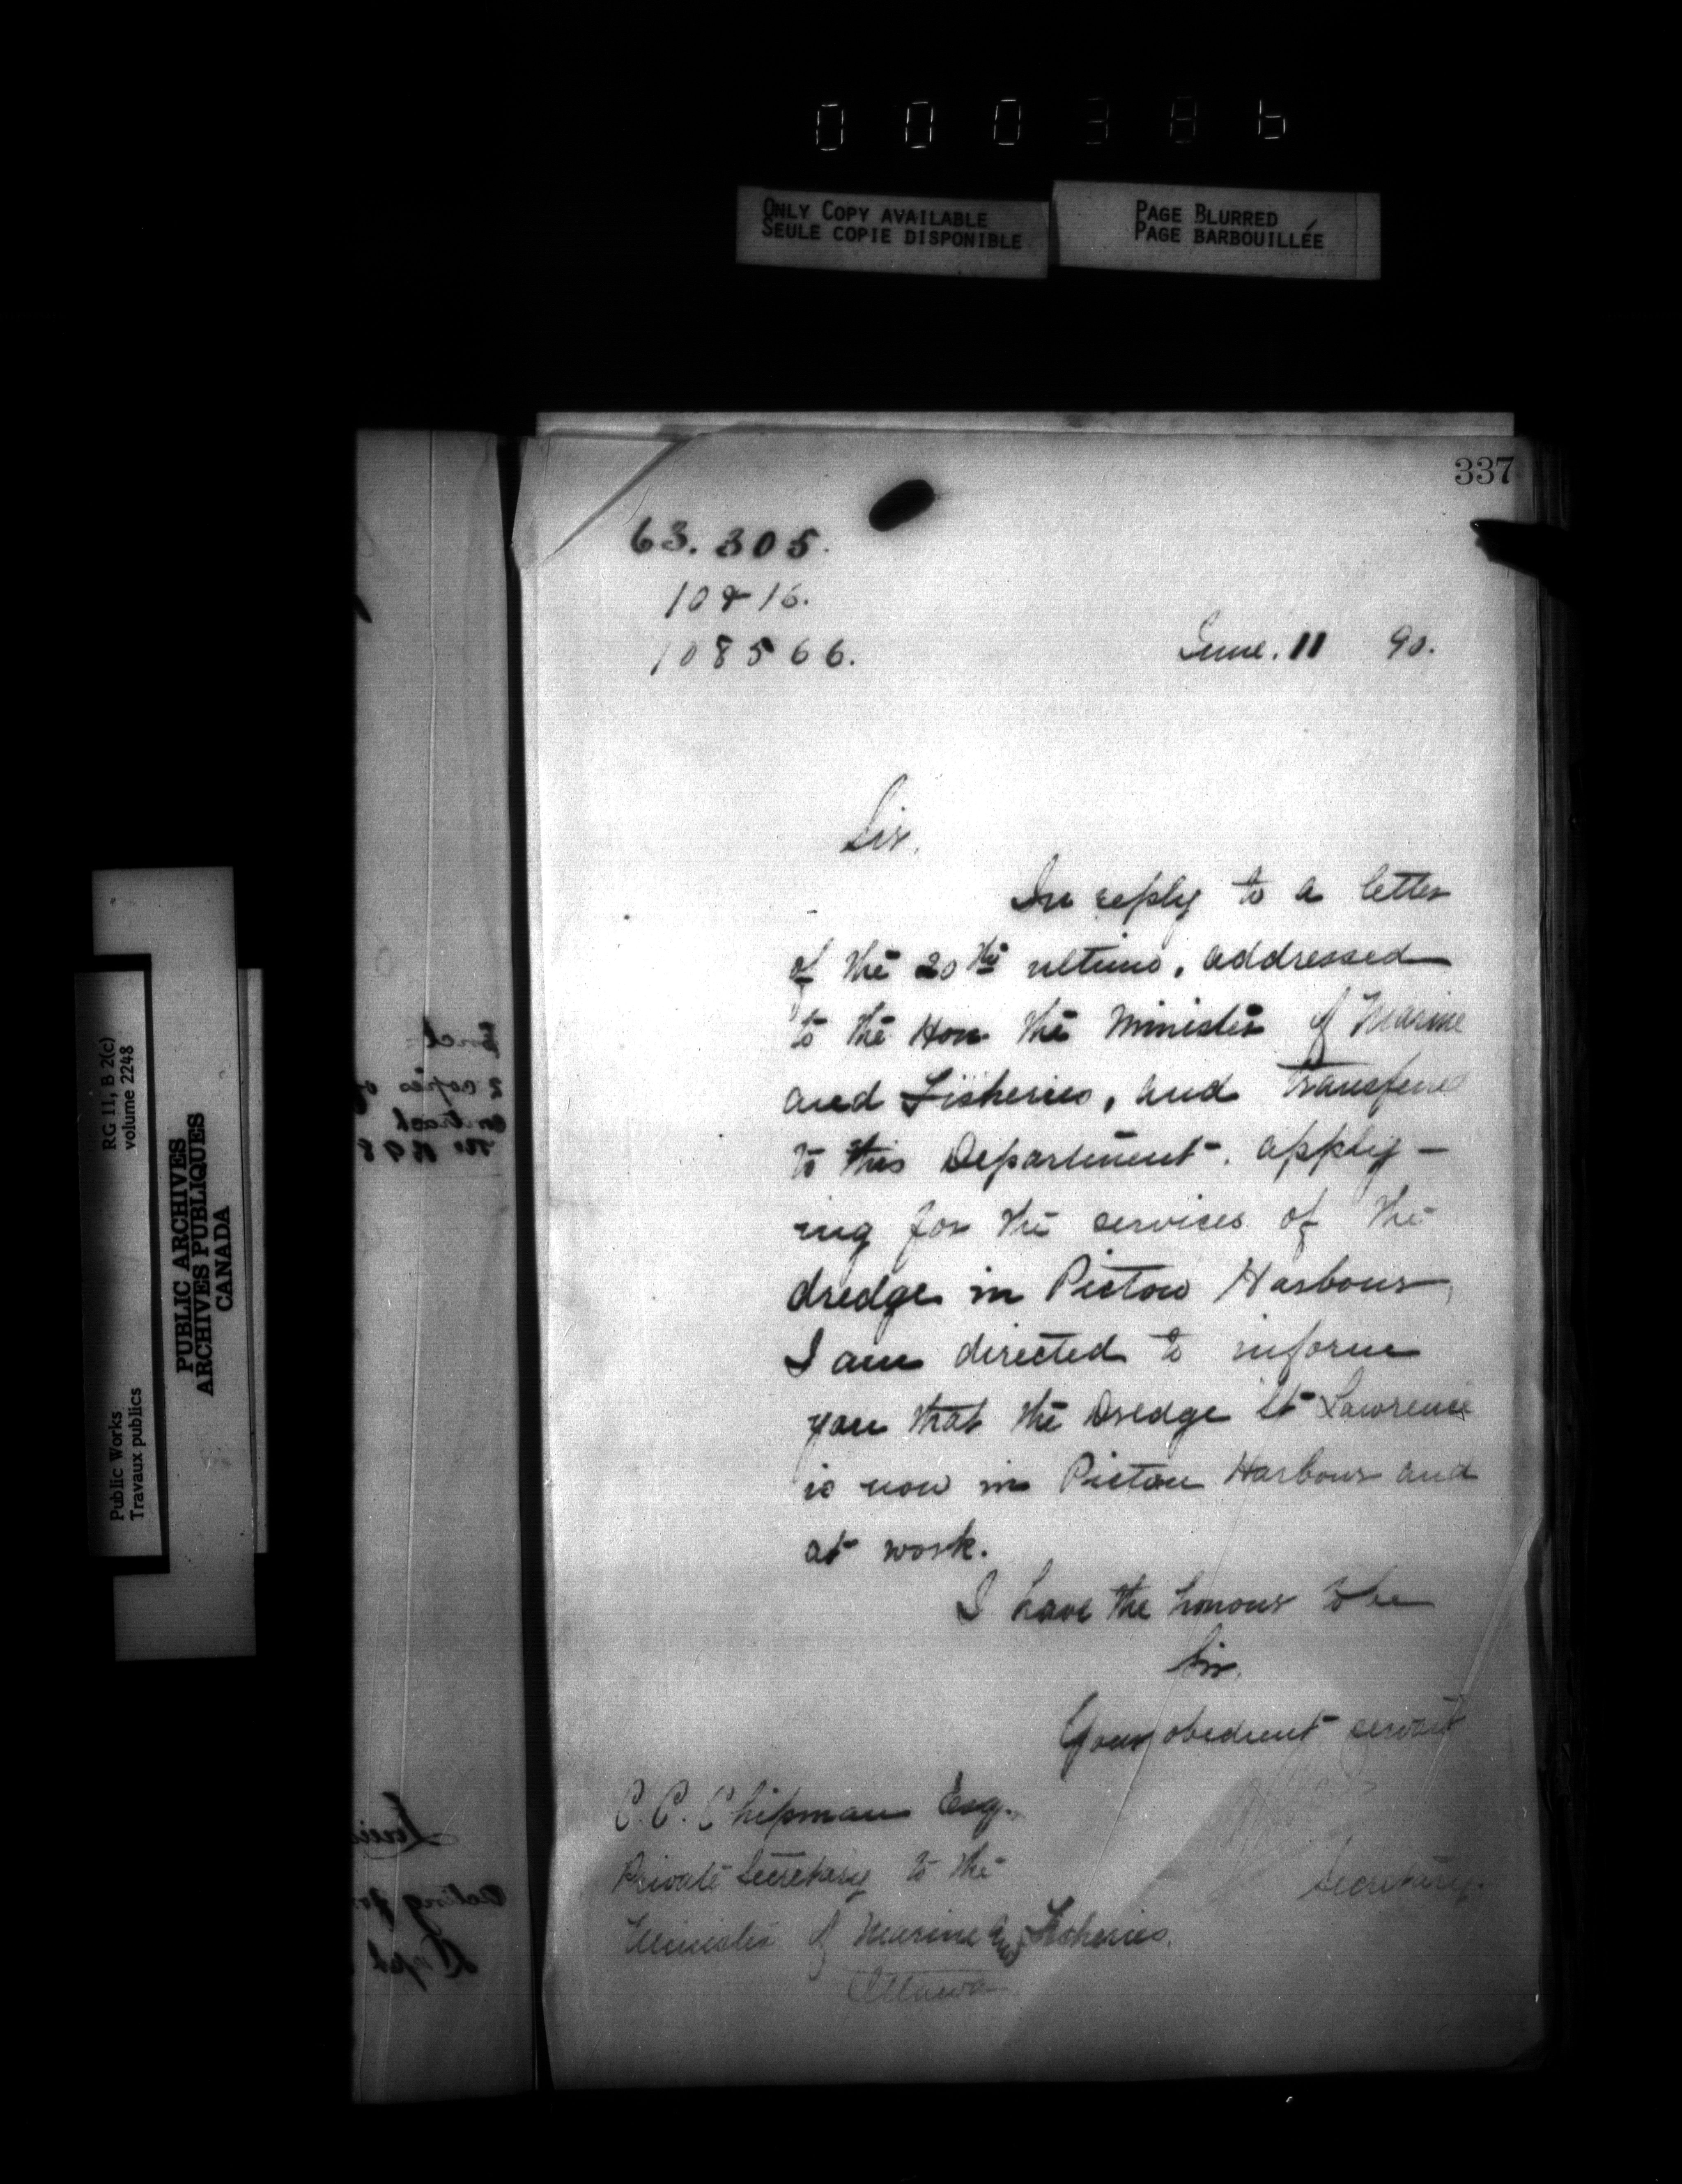 000386
ONLY COPY AVAILABLE
SEULE COPIE DISPONIBLE
PAGE BLURRED
PAGE BARBOUILLÉE
337
63.305.
108566.
June. 11 90.
Sir,
In reply to a letter
of the 20th ultimo, addressed
to the Hon the Minister of Marine
and Fisheries, and transferred
to this Department, apply-
ing for the services of the
dredge in Pictou Harbour,
I am directed to inform
you that the Dredge St Lawrence
is now in Pictou Harbour and
at work.
I have the honour to be
Sir,
Your obedient servant
Secretary.
C. C. Chipman Esq.
Private Secretary to the
Minister of Marine and Fisheries.
Ottawa
RG 11, B 2(c)
volume 2248
Public Works
Travaux publics
PUBLIC ARCHIVES
ARCHIVES PUBLIQUES
CANADA